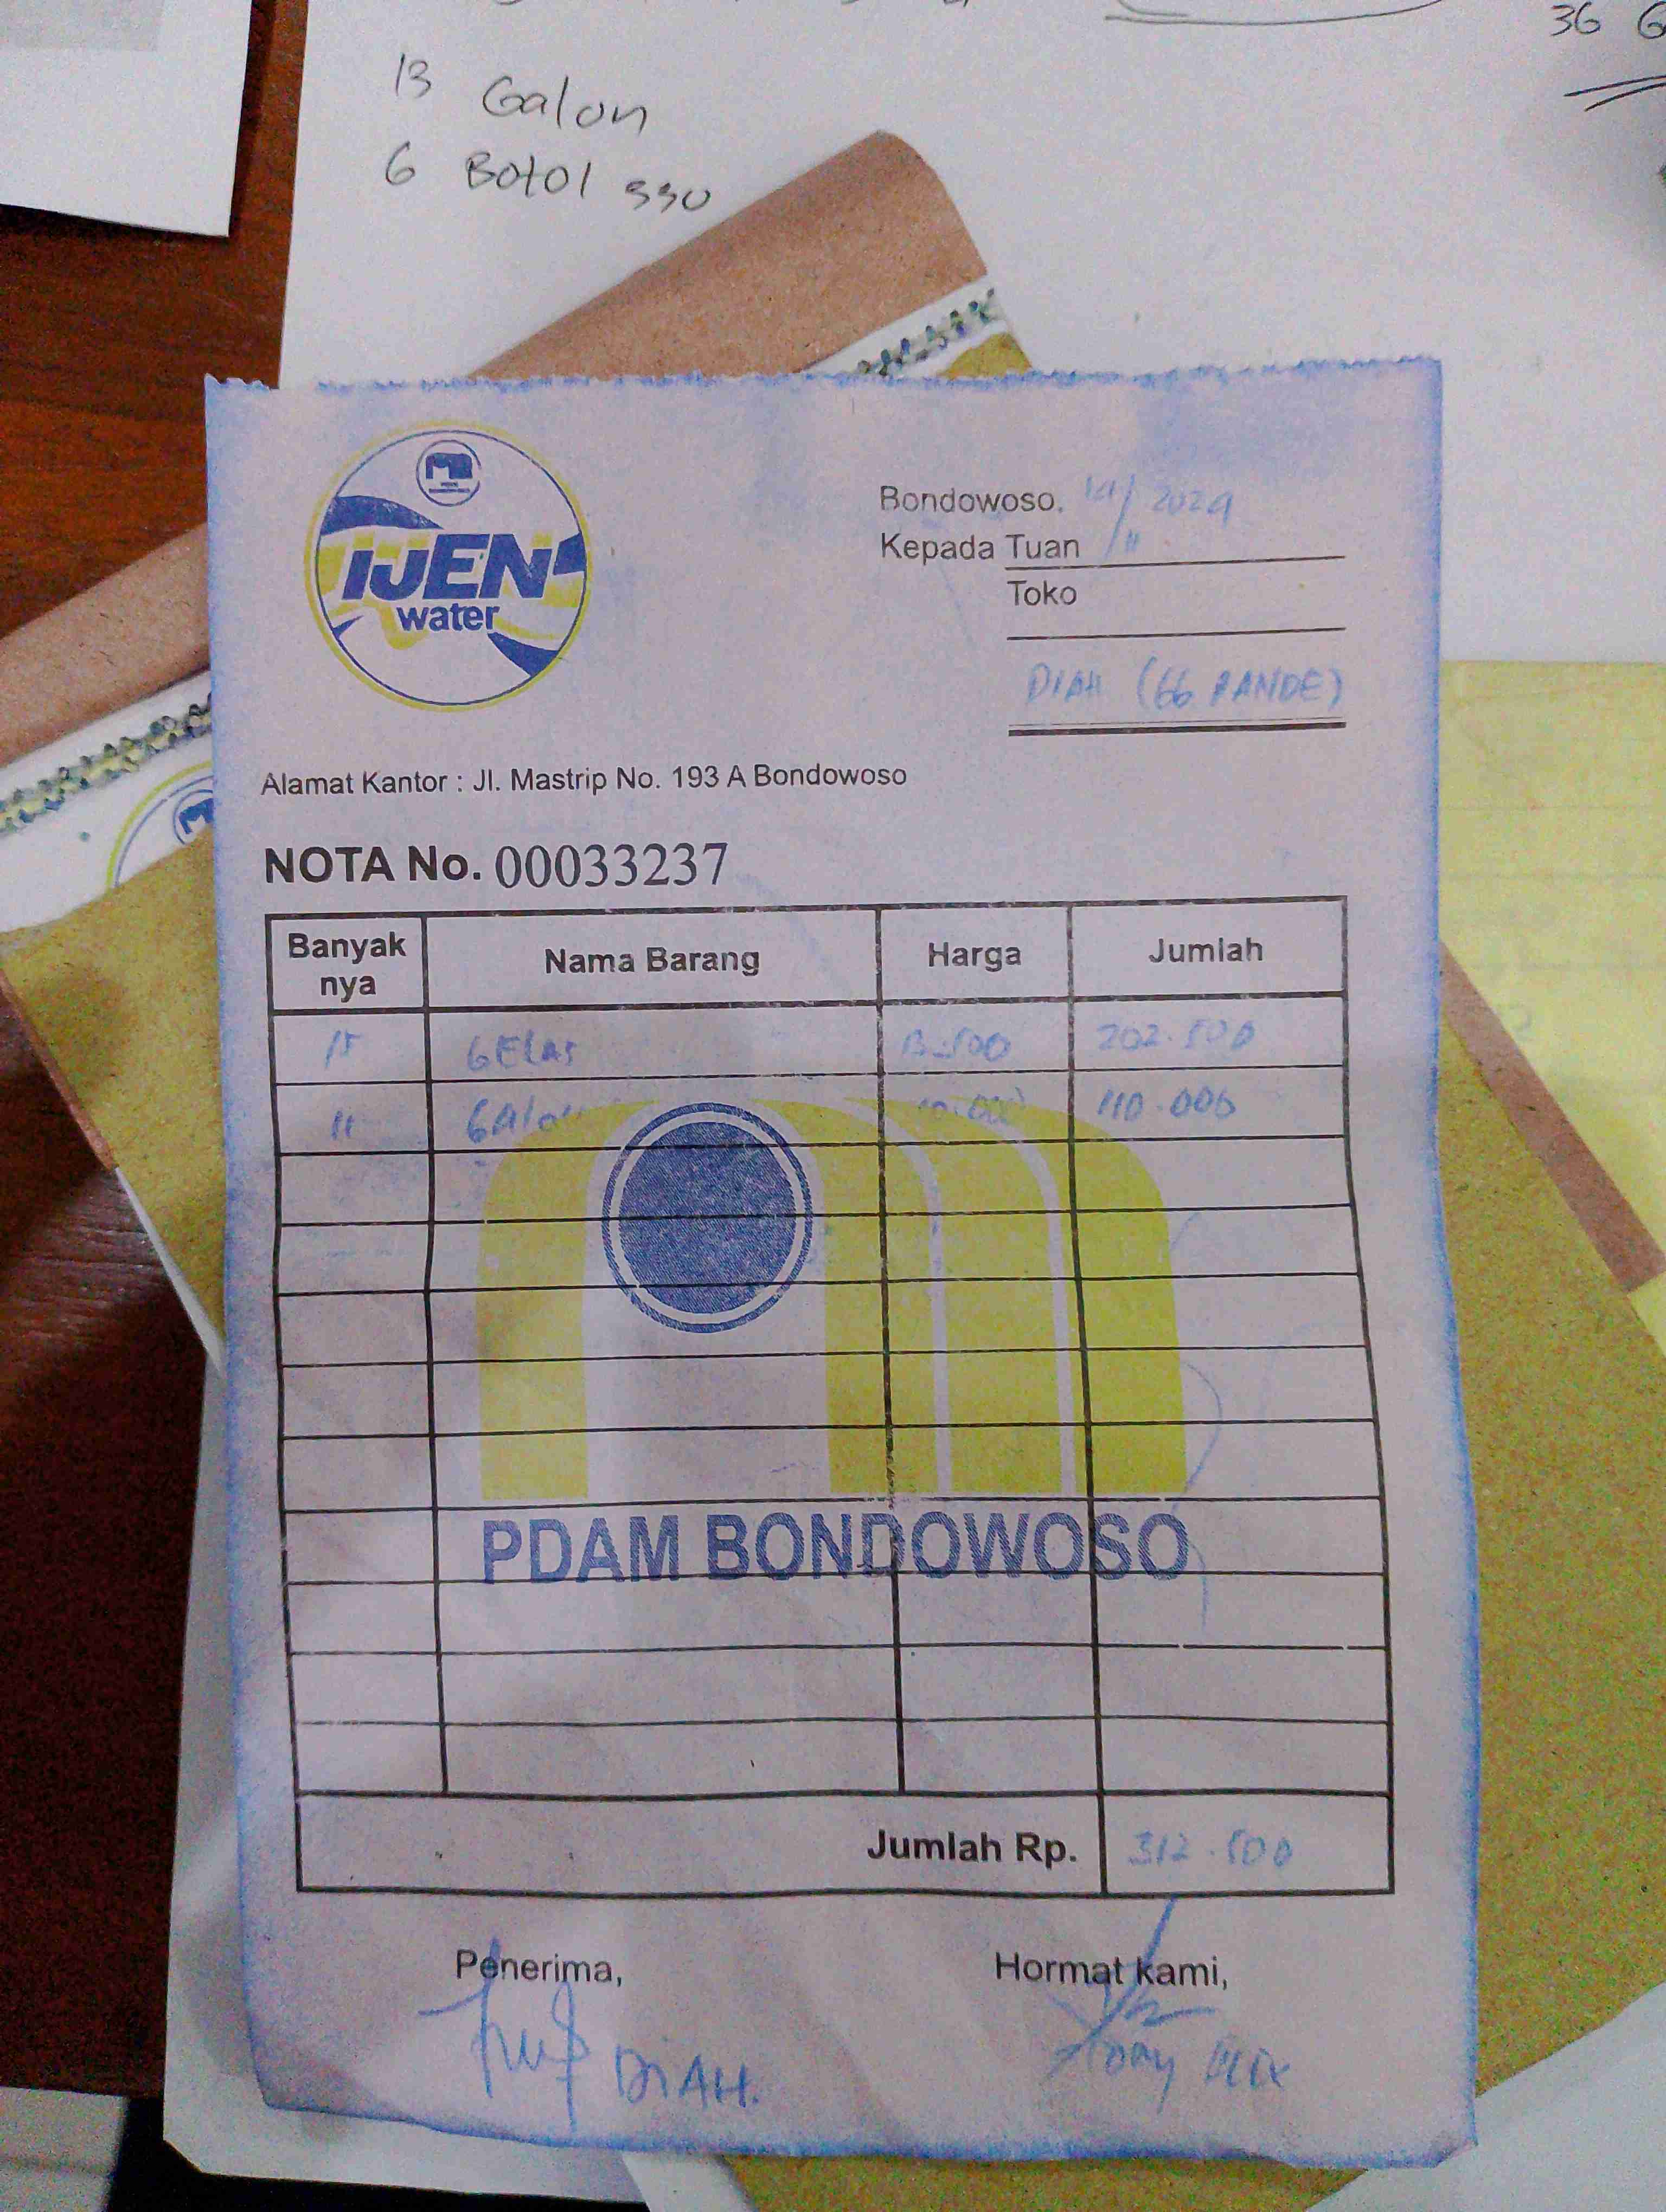 13 Galon
6 Botol 330
36 G
IJEN
water
Bondowoso, 14/11 2024
Kepada Tuan
Toko
DIAH (66 RANDE)
Alamat Kantor : Jl. Mastrip No. 193 A Bondowoso
NOTA No. 00033237
Banyak nya Nama Barang Harga Jumlah
15 GELAS 13.500 202.500
11 GAlon 10.000 110.000
PDAM BONDOWOSO
Jumlah Rp. 312.500
Penerima, Hormat kami,
DiAH.